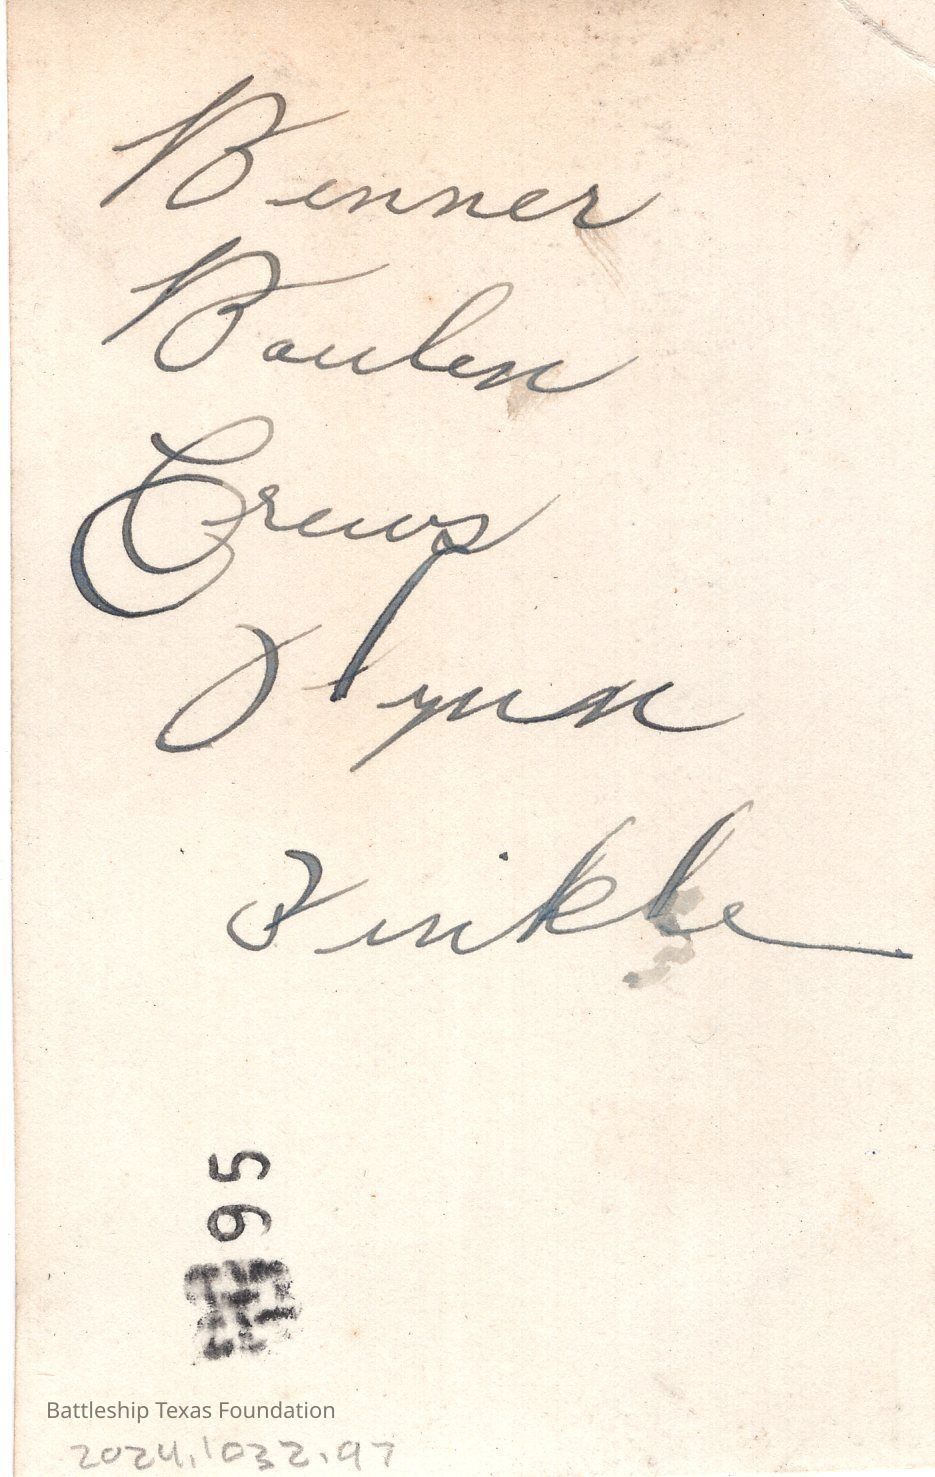 Benner
Boulen
Crews
Flynn
Finkle
95
Battleship Texas Foundation
2024.1032.97